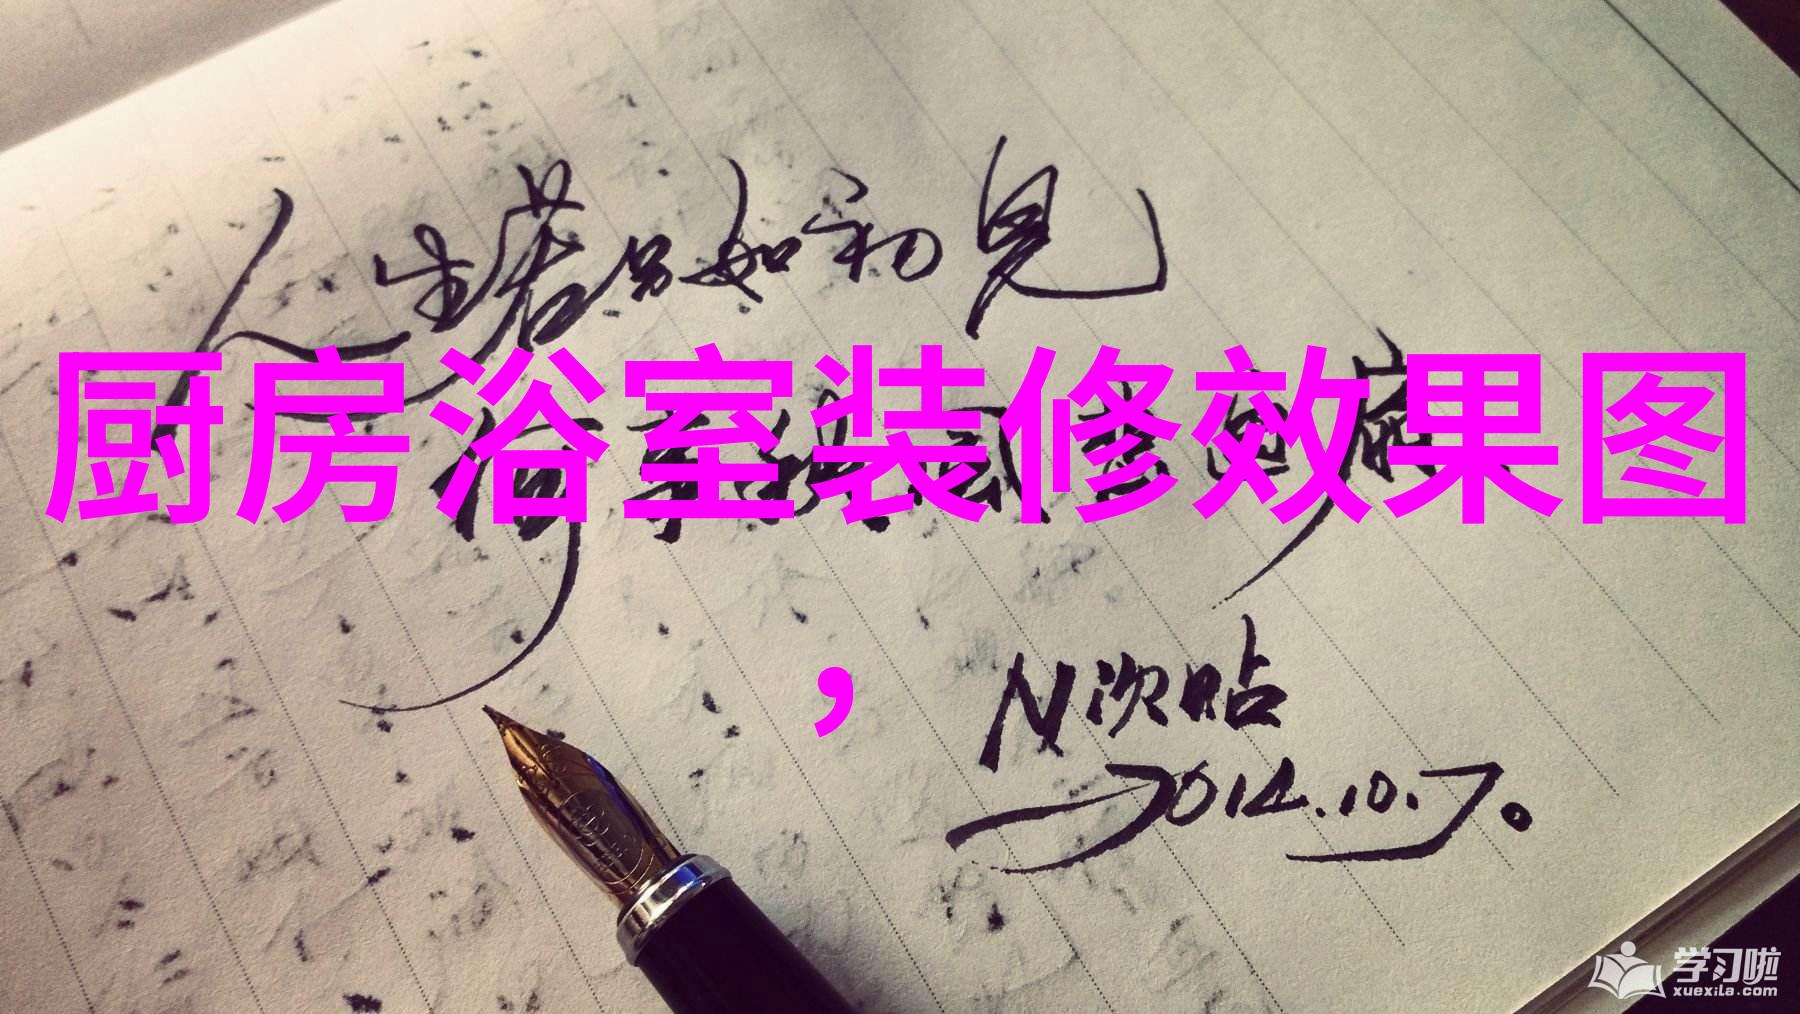 人生若只如初见
厨房浴室装修效果图
，
N次贴
2014.10.7。
学习啦
xuexila.com